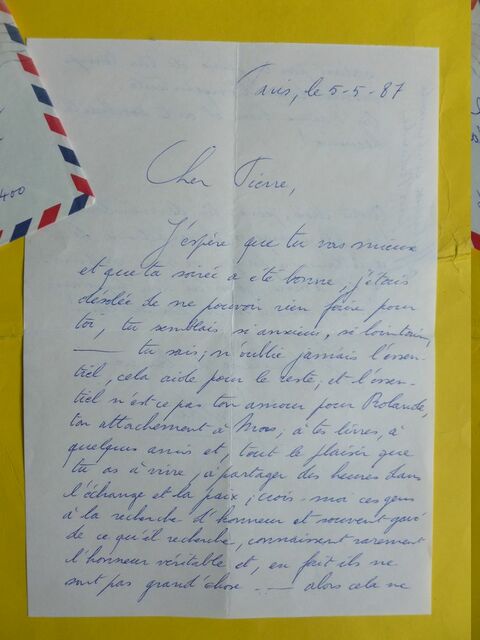 Paris, le 5-5-87
Cher Pierre,
J'espère que tu vas mieux
et que ta soirée a été bonne, j'étais
désolée de ne pouvoir rien faire pour
toi, tu semblais si anxieux, si lointain,
— tu sais; n'oublie jamais l'essen-
tiel, cela aide pour le reste, et l'essen-
tiel n'est ce pas ton amour pour Rolande,
ton attachement à Mours; à tes livres, à
quelques amis et, tout le plaisir que
tu as à vivre, à partager des heures dans
l'échange et la paix; crois-moi ces gens
à la recherche d'honneur et souvent gavé
de ce qu'il recherche, connaissent rarement
l'honneur véritable et, en fait ils ne
sont pas grand'chose .. — alors cela ne
400